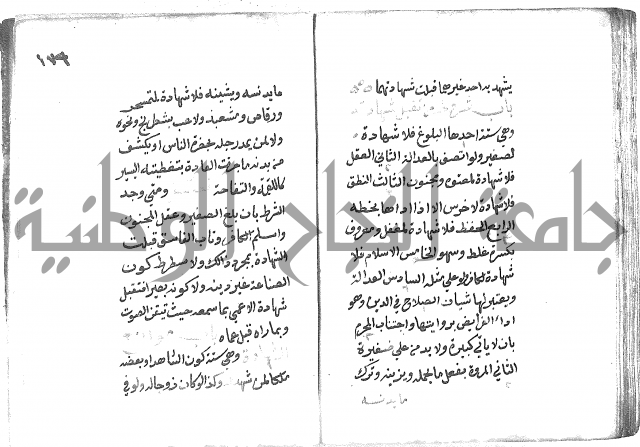 يشهد به احد غيرهما قبلت شهادتهما
باب شروط من تقبل شهادته
وهي ستة احدها البلوغ فلا شهادة
لصغير ولو اتصف بالعدالة الثاني العقل
فلا شهادة لمعتوه ومجنون الثالث النطق
فلا شهادة لاخرس الا اذا اداها بخطه
الرابع الحفظ فلا شهادة لمغفل ومعروف
بكثرة غلط وسهو الخامس الاسلام فلا
شهادة لكافر ولو على مثله السادس العدالة
ويعتبر لها شيآن الصلاح في الدين وهو
اداء الفرايض برواتبها واجتناب المحرم
بان لا ياتي كبيرة ولا يدمن على صغيرة
الثاني المروة بفعل ما يجمله ويزينه وترك
ما يدنسه
١٣٦
ما يدنسه ويشينه فلا شهادة لمتمسخر
ورقاص ومشعبذ ولاعب بشطرنج ونحوه
ولا لمن يمد رجله بحضرة الناس او يكشف
من بدنه ما جرت العادة بتغطيته
كاللقمة والتفاحة ومتى وجد
الشرط بان بلغ الصغير وعقل المجنون
واسلم الكافر وتاب الفاسق قبلت
الشهادة بمجرد ذلك ولا
الصناعة غير دنية ولا كونه بصيرا فتقبل
شهادة الاعمى بما سمعه حيث تيقن الصوت
وبما راه قبل عماه
وهي ستة كون الشاهد او بعضه
ملكا لمن شهد وكذا لو كان زوجا له ولو في
جامعة النجاح الوطنية